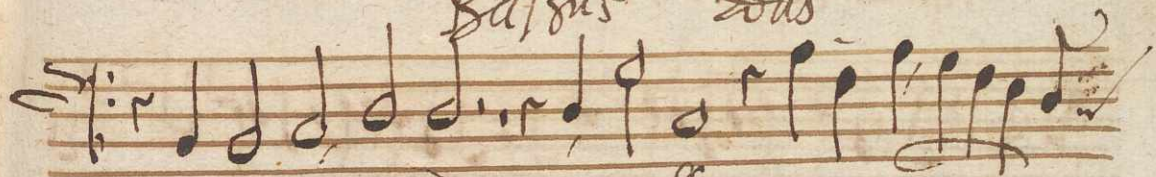 Bassus 2dus